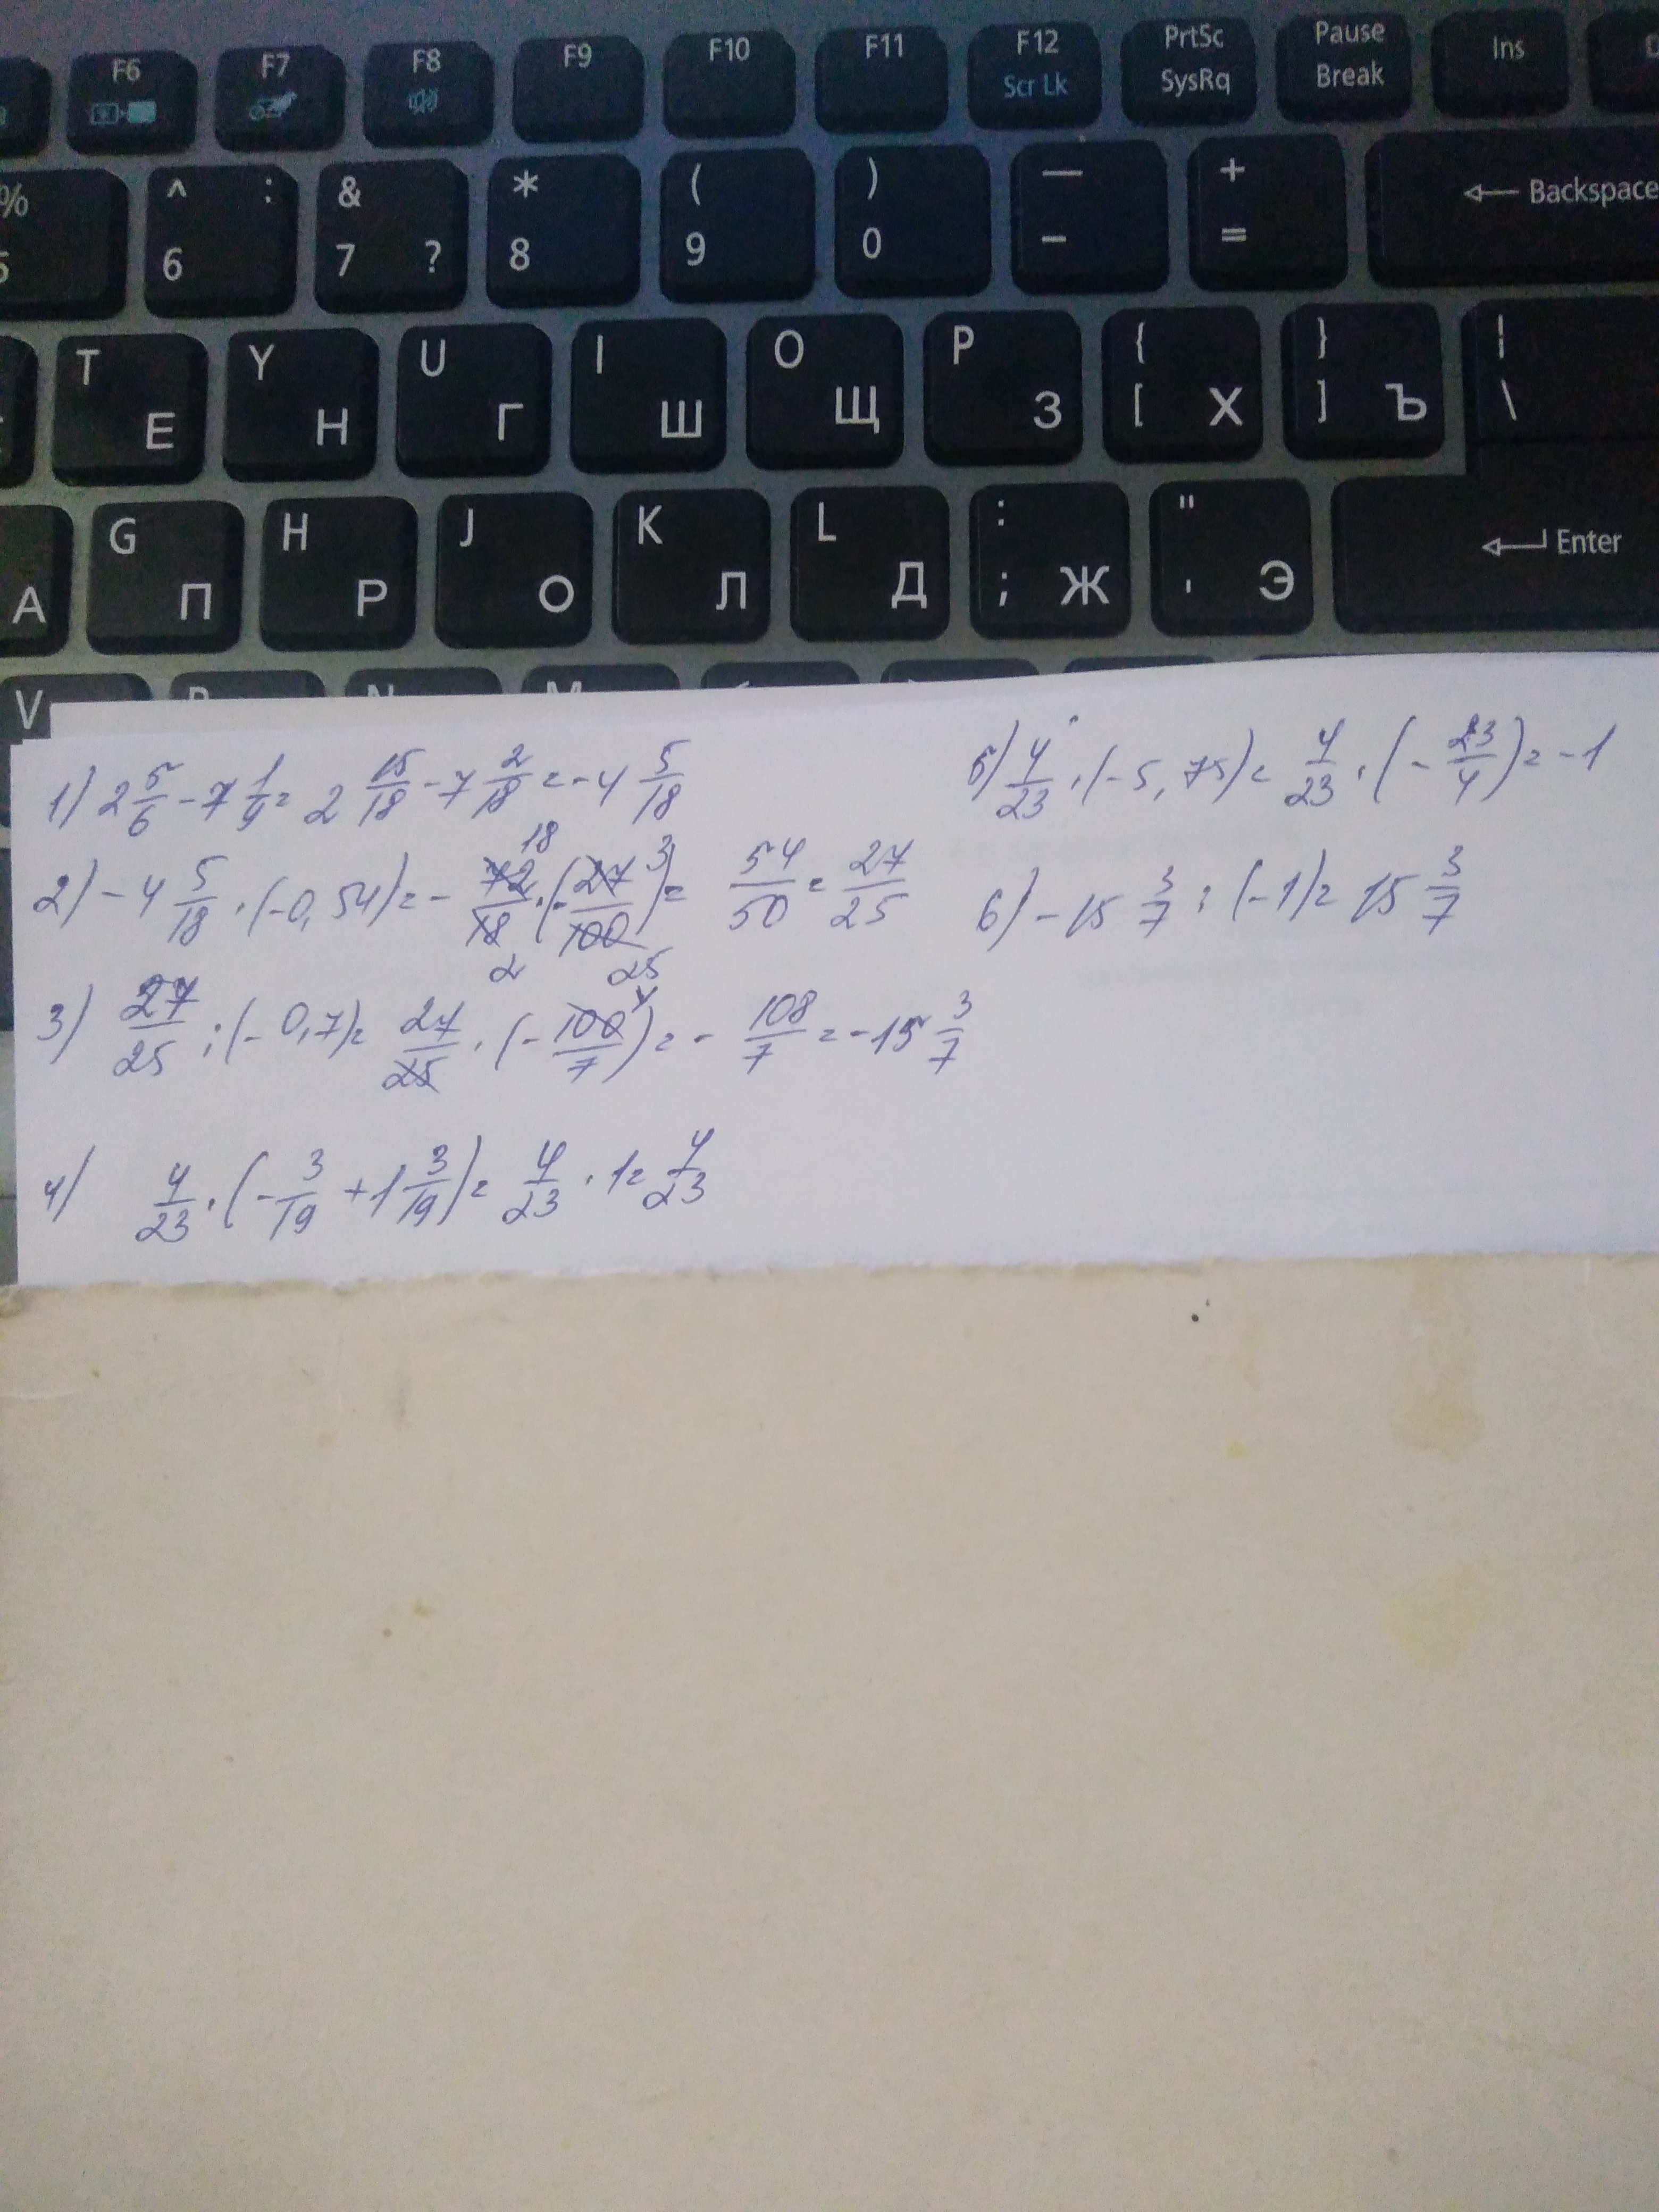 F6 F7 F8 F9 F10 F11 F12 Scr Lk PrtSc SysRq Pause Break Ins D
% 5 ^ : 6 & 7 ? * 8 ( 9 ) 0 — - + = Backspace
T Е Y Н U Г I Ш O Щ P З { [ Х } ] Ъ | \
А G П H Р J О K Л L Д : ; Ж " ' Э Enter
V
1) 2 5/6 - 7 1/9 = 2 15/18 - 7 2/18 = - 4 5/18
2) - 4 5/18 · (-0,54) = - 72/18 · (- 27/100) = 54/50 = 27/25
18 3
2 25
3) 27/25 : (-0,7) = 27/25 · (- 100/7) = - 108/7 = - 15 3/7
4
4) 4/23 · (- 3/19 + 1 3/19) = 4/23 · 1 = 4/23
5) 4/23 · (-5,75) = 4/23 · (- 23/4) = -1
6) - 15 3/7 : (-1) = 15 3/7